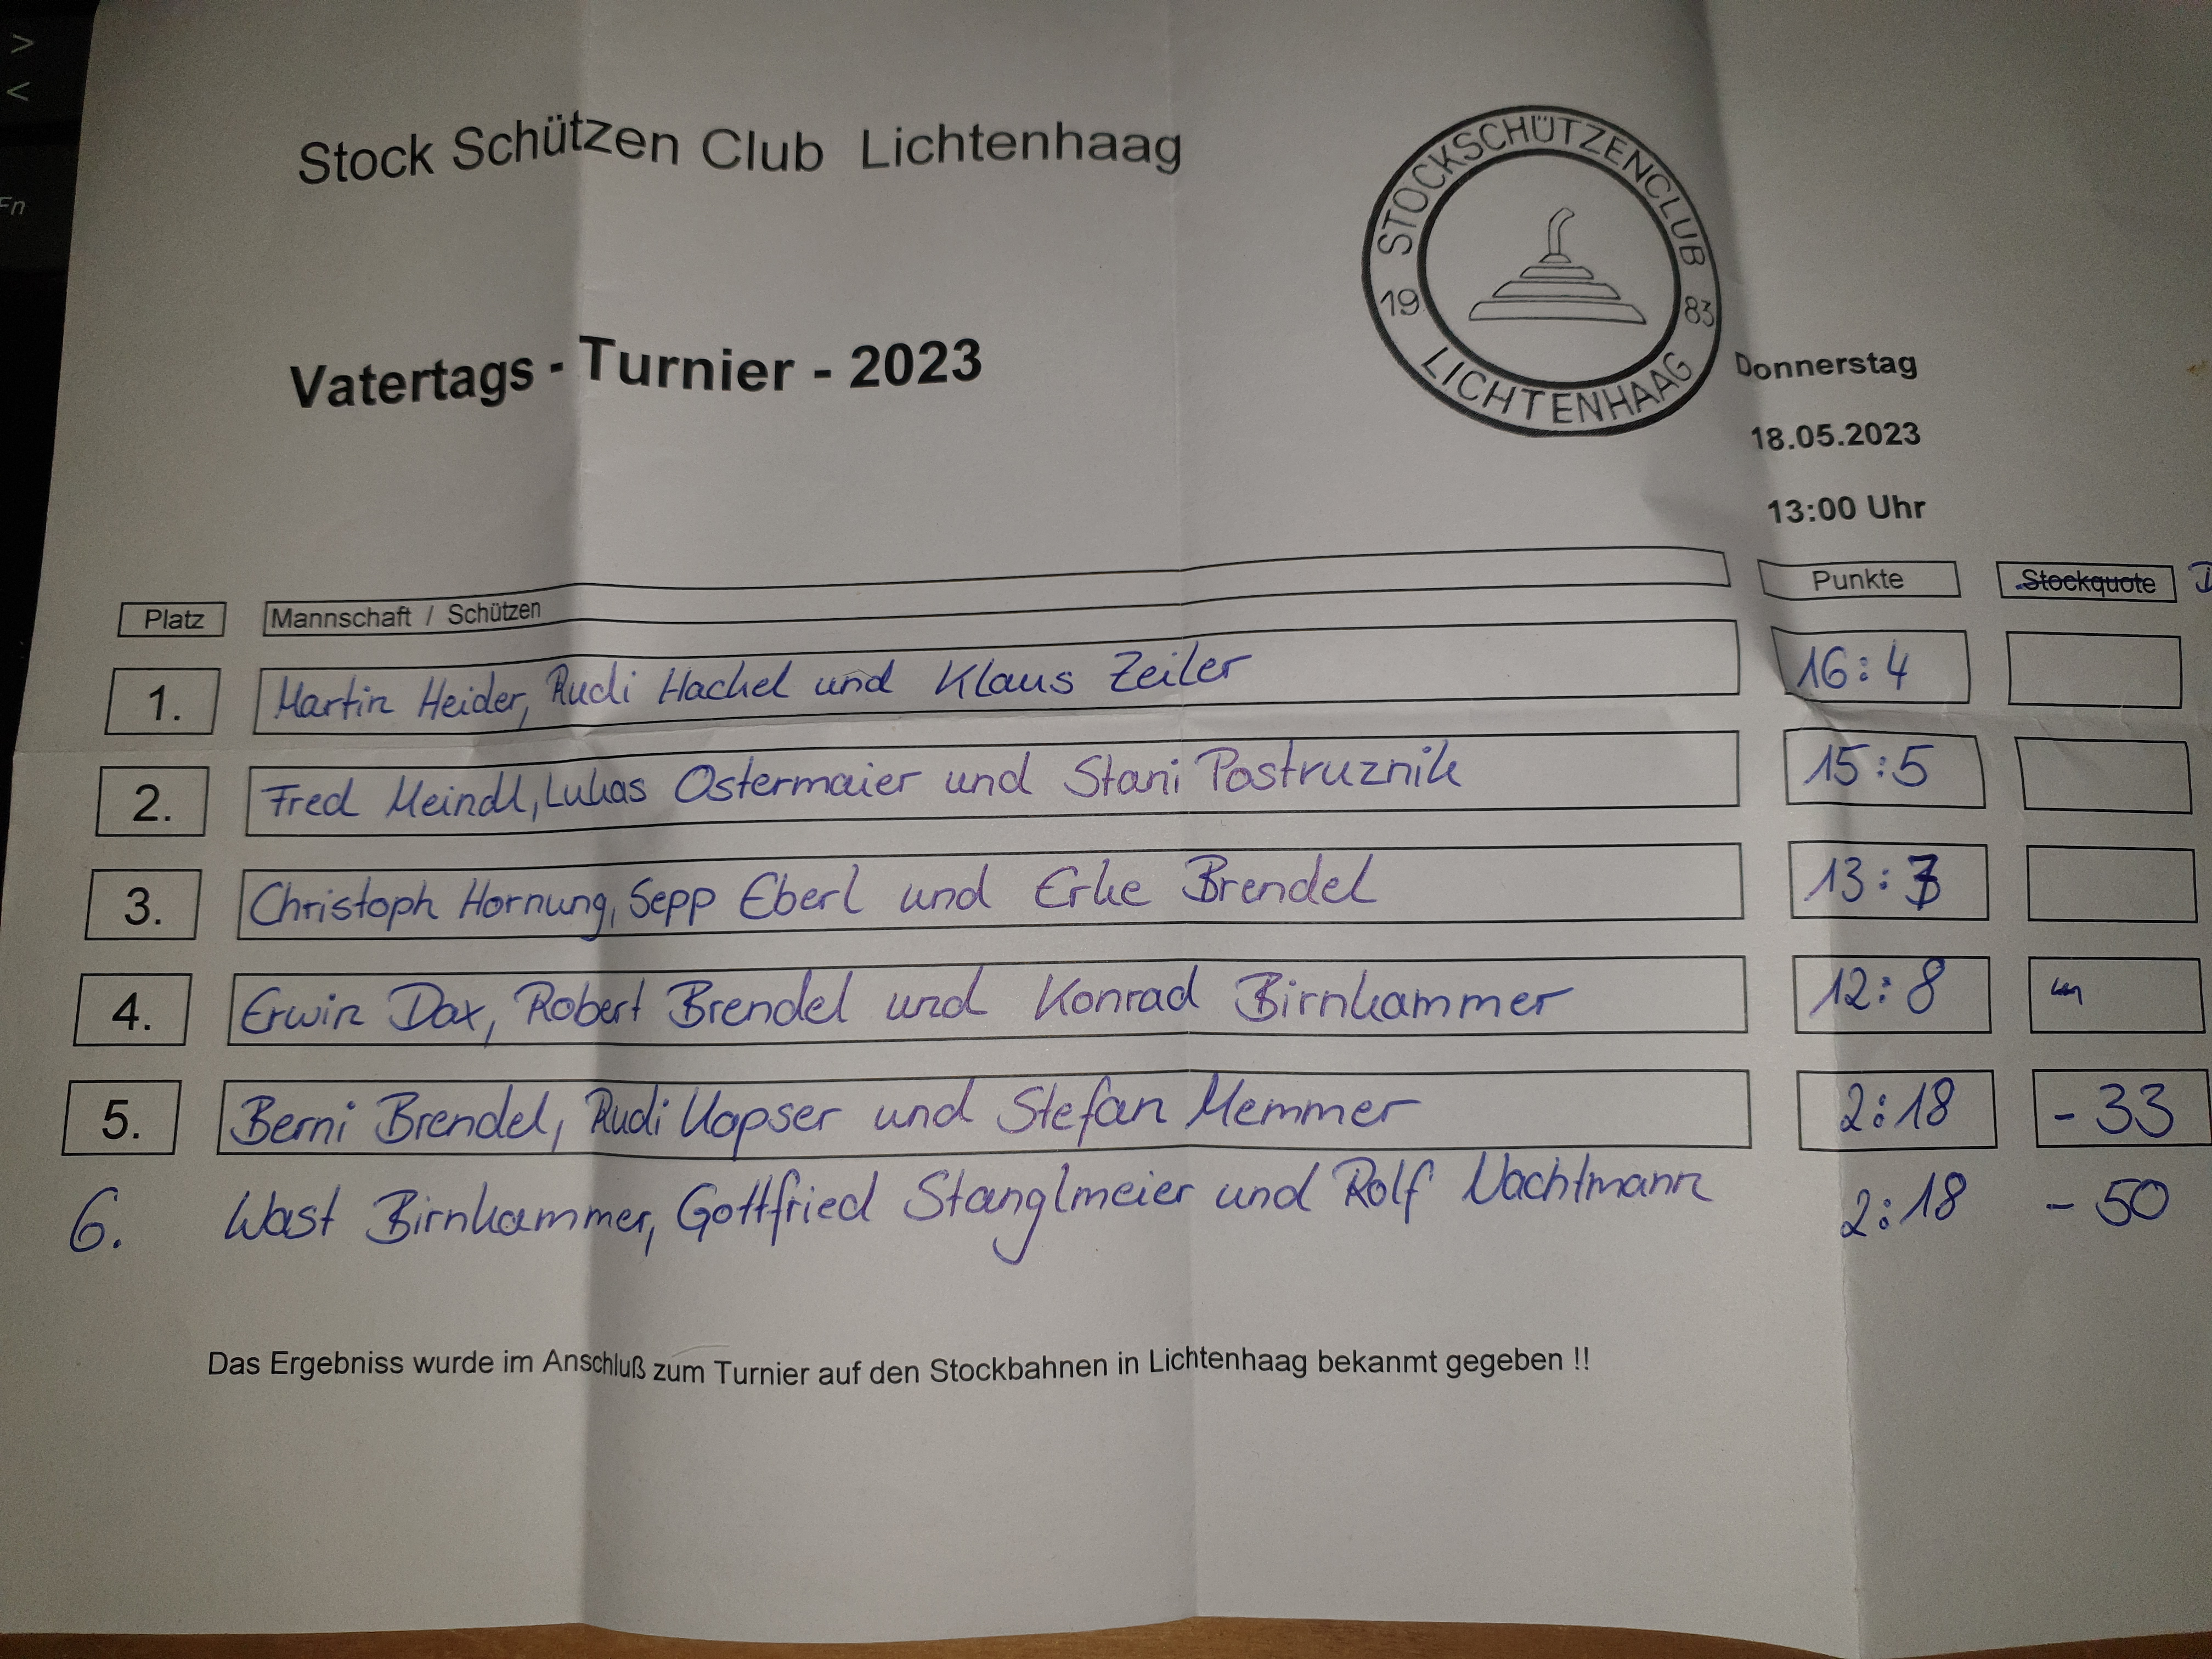 >
<
Fn
Stock Schützen Club Lichtenhaag
STOCKSCHÜTZENCLUB
19 83
LICHTENHAAG
Vatertags - Turnier - 2023
Donnerstag
18.05.2023
13:00 Uhr
Platz Mannschaft / Schützen Punkte Stockquote
1. Martin Heider, Rudi Hackel und Klaus Zeiler 16:4
2. Fred Meindl, Lukas Ostermaier und Stani Postruznik 15:5
3. Christoph Hornung, Sepp Eberl und Erke Brendel 13:7
4. Erwin Dax, Robert Brendel und Konrad Birnkammer 12:8
5. Berni Brendel, Rudi Kapser und Stefan Memmer 2:18 -33
6. Wast Birnkammer, Gottfried Stanglmeier und Rolf Nachtmann 2:18 -50
Das Ergebniss wurde im Anschluß zum Turnier auf den Stockbahnen in Lichtenhaag bekanmt gegeben !!